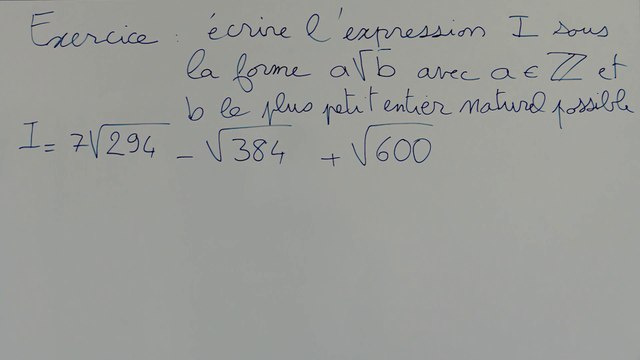 Exercice : écrire l'expression I sous
la forme a√b avec a ∈ ℤ et
b le plus petit entier naturel possible
I = 7√294 - √384 + √600